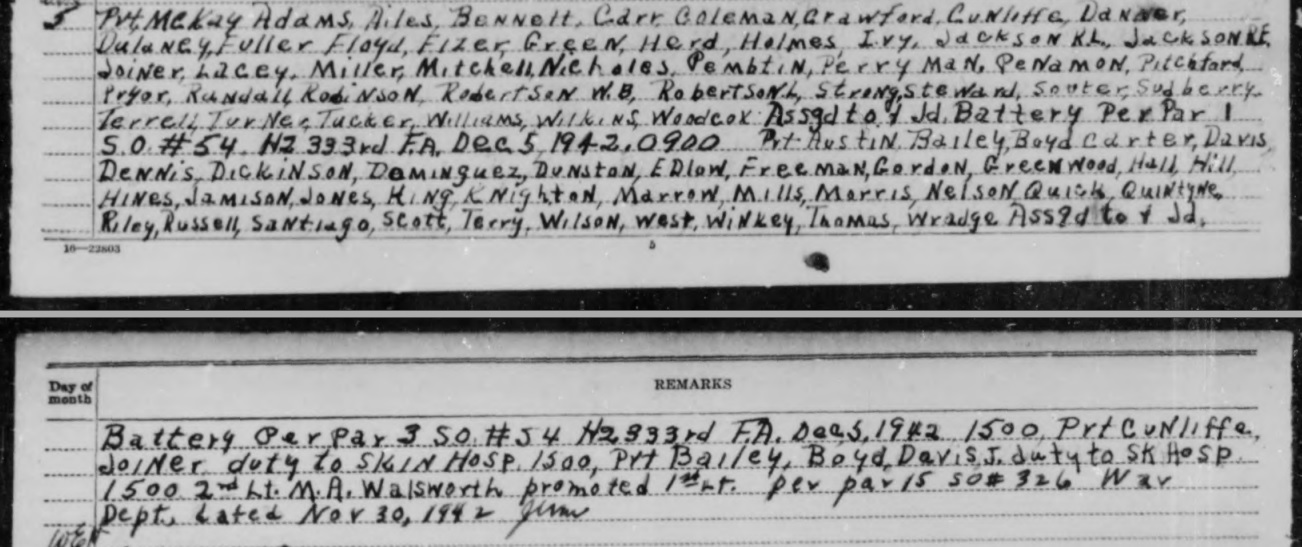 5 Pvt. McKay Adams, Ailes, Bennett, Carr Coleman, Crawford, Cunliffe, Danner,
Dulaney, Fuller Floyd, Fizer, Green, Herd, Holmes Ivy, Jackson K.L., Jackson R.E.
Joiner, Lacey, Miller, Mitchell, Nicholes, Pembtin, Perry man, Penamon, Pitchford,
Pryor, Randall, Robinson, Robertson W.B, Robertson L, Strong, Steward, Souter, Sudberry,
Terrell, Turner, Tucker, Williams, Wilkins, Woodcox Assgd to & Jd. Battery Per Par 1
S.O. #54 H2 333rd F.A. Dec 5, 1942. 0900 Pvt Austin, Bailey, Boyd Carter, Davis
Dennis, Dickinson, Dominguez, Dunston, Edlow, Freeman, Gordon, Greenwood, Hall, Hill,
Hines, Jamison, Jones, King, Knighton, Marrow, Mills, Morris, Nelson Quick, Quintyne,
Riley, Russell, Santiago, Scott, Terry, Wilson, West, Winkey, Thomas, Wradge Assgd to & Jd.
16—22803 5
Day of month REMARKS
Battery Per par 3 SO. #54 H2 333rd F.A. Dec 5, 1942 1500, Prt Cunliffe,
Joiner duty to SK IN Hosp. 1500, Prt Bailey, Boyd, Davis, J. duty to SK Hosp
1500 2nd Lt. M.A. Walsworth promoted 1st Lt. per par 15 SO# 326 War
Dept. Dated Nov 30, 1942